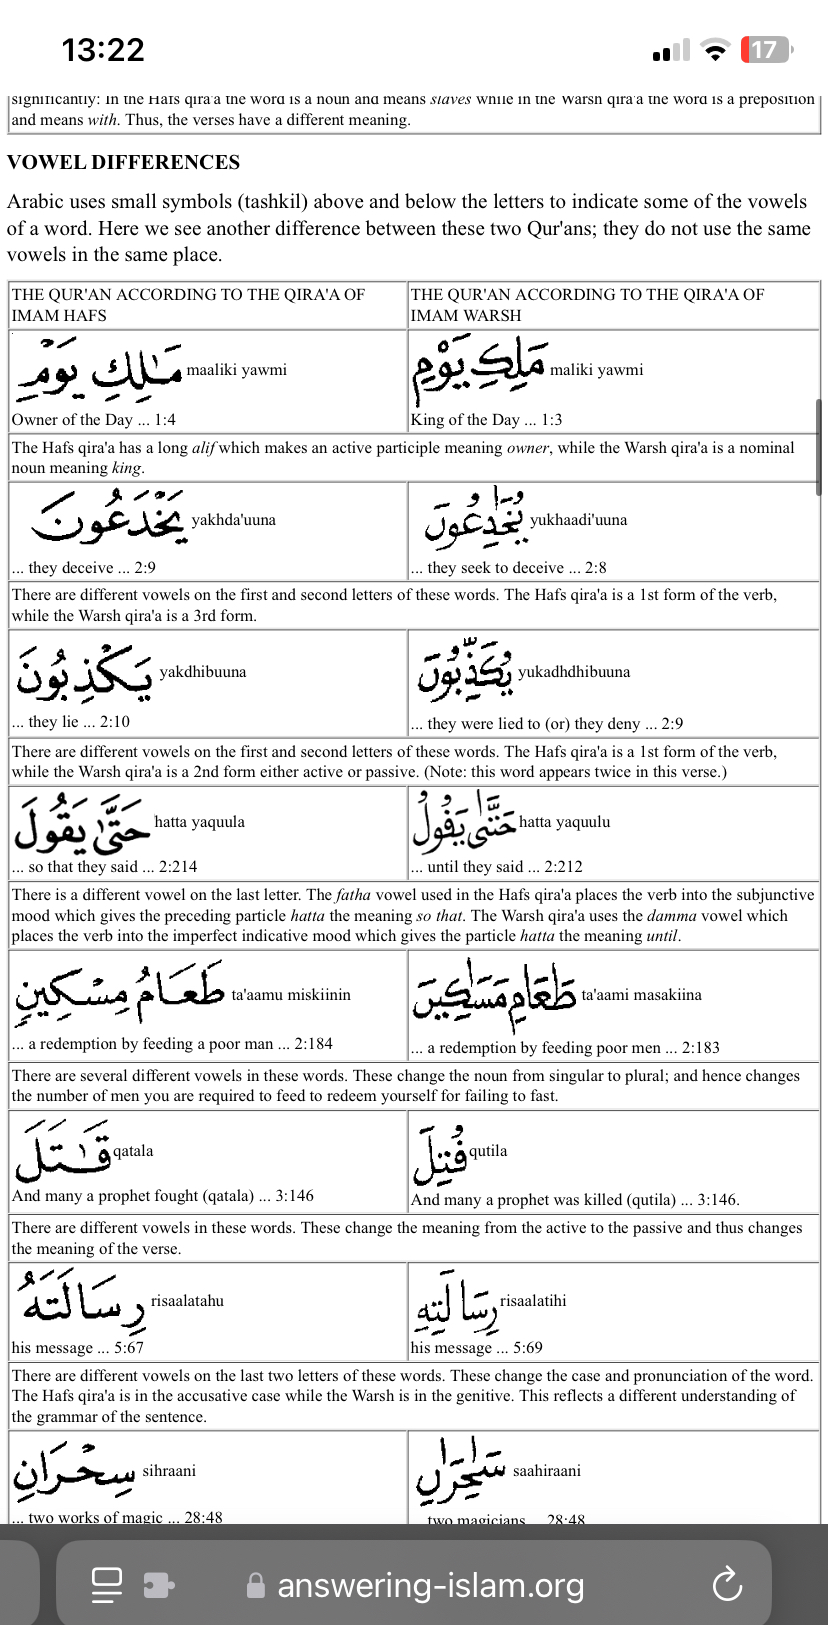 13:22
17
significantly: In the Hafs qira'a the word is a noun and means slaves while in the Warsh qira'a the word is a preposition
and means with. Thus, the verses have a different meaning.
VOWEL DIFFERENCES
Arabic uses small symbols (tashkil) above and below the letters to indicate some of the vowels
of a word. Here we see another difference between these two Qur'ans; they do not use the same
vowels in the same place.
THE QUR'AN ACCORDING TO THE QIRA'A OF
IMAM HAFS
THE QUR'AN ACCORDING TO THE QIRA'A OF
IMAM WARSH
مَـٰلِكِ يَوْمِ maaliki yawmi
Owner of the Day ... 1:4
مَلِكِ يَوْمِ maliki yawmi
King of the Day ... 1:3
The Hafs qira'a has a long alif which makes an active participle meaning owner, while the Warsh qira'a is a nominal
noun meaning king.
يَخْدَعُونَ yakhda'uuna
... they deceive ... 2:9
يُخَٰدِعُونَ yukhaadi'uuna
... they seek to deceive ... 2:8
There are different vowels on the first and second letters of these words. The Hafs qira'a is a 1st form of the verb,
while the Warsh qira'a is a 3rd form.
يَكْذِبُونَ yakdhibuuna
... they lie ... 2:10
يُكَذِّبُونَ yukadhdhibuuna
... they were lied to (or) they deny ... 2:9
There are different vowels on the first and second letters of these words. The Hafs qira'a is a 1st form of the verb,
while the Warsh qira'a is a 2nd form either active or passive. (Note: this word appears twice in this verse.)
حَتَّىٰ يَقُولَ hatta yaquula
... so that they said ... 2:214
حَتَّىٰ يَقُولُ hatta yaquulu
... until they said ... 2:212
There is a different vowel on the last letter. The fatha vowel used in the Hafs qira'a places the verb into the subjunctive
mood which gives the preceding particle hatta the meaning so that. The Warsh qira'a uses the damma vowel which
places the verb into the imperfect indicative mood which gives the particle hatta the meaning until.
طَعَامُ مِسْكِينٍ ta'aamu miskiinin
... a redemption by feeding a poor man ... 2:184
طَعَامِ مَسَٰكِينَ ta'aami masakiina
... a redemption by feeding poor men ... 2:183
There are several different vowels in these words. These change the noun from singular to plural; and hence changes
the number of men you are required to feed to redeem yourself for failing to fast.
قَـٰتَلَ qatala
And many a prophet fought (qatala) ... 3:146
قُتِلَ qutila
And many a prophet was killed (qutila) ... 3:146.
There are different vowels in these words. These change the meaning from the active to the passive and thus changes
the meaning of the verse.
رِسَالَتَهُ risaalatahu
his message ... 5:67
رِسَالَتِهِ risaalatihi
his message ... 5:69
There are different vowels on the last two letters of these words. These change the case and pronunciation of the word.
The Hafs qira'a is in the accusative case while the Warsh is in the genitive. This reflects a different understanding of
the grammar of the sentence.
سِحْرَانِ sihraani
... two works of magic ... 28:48
سَٰحِرَٰنِ saahiraani
... two magicians ... 28:48
answering-islam.org